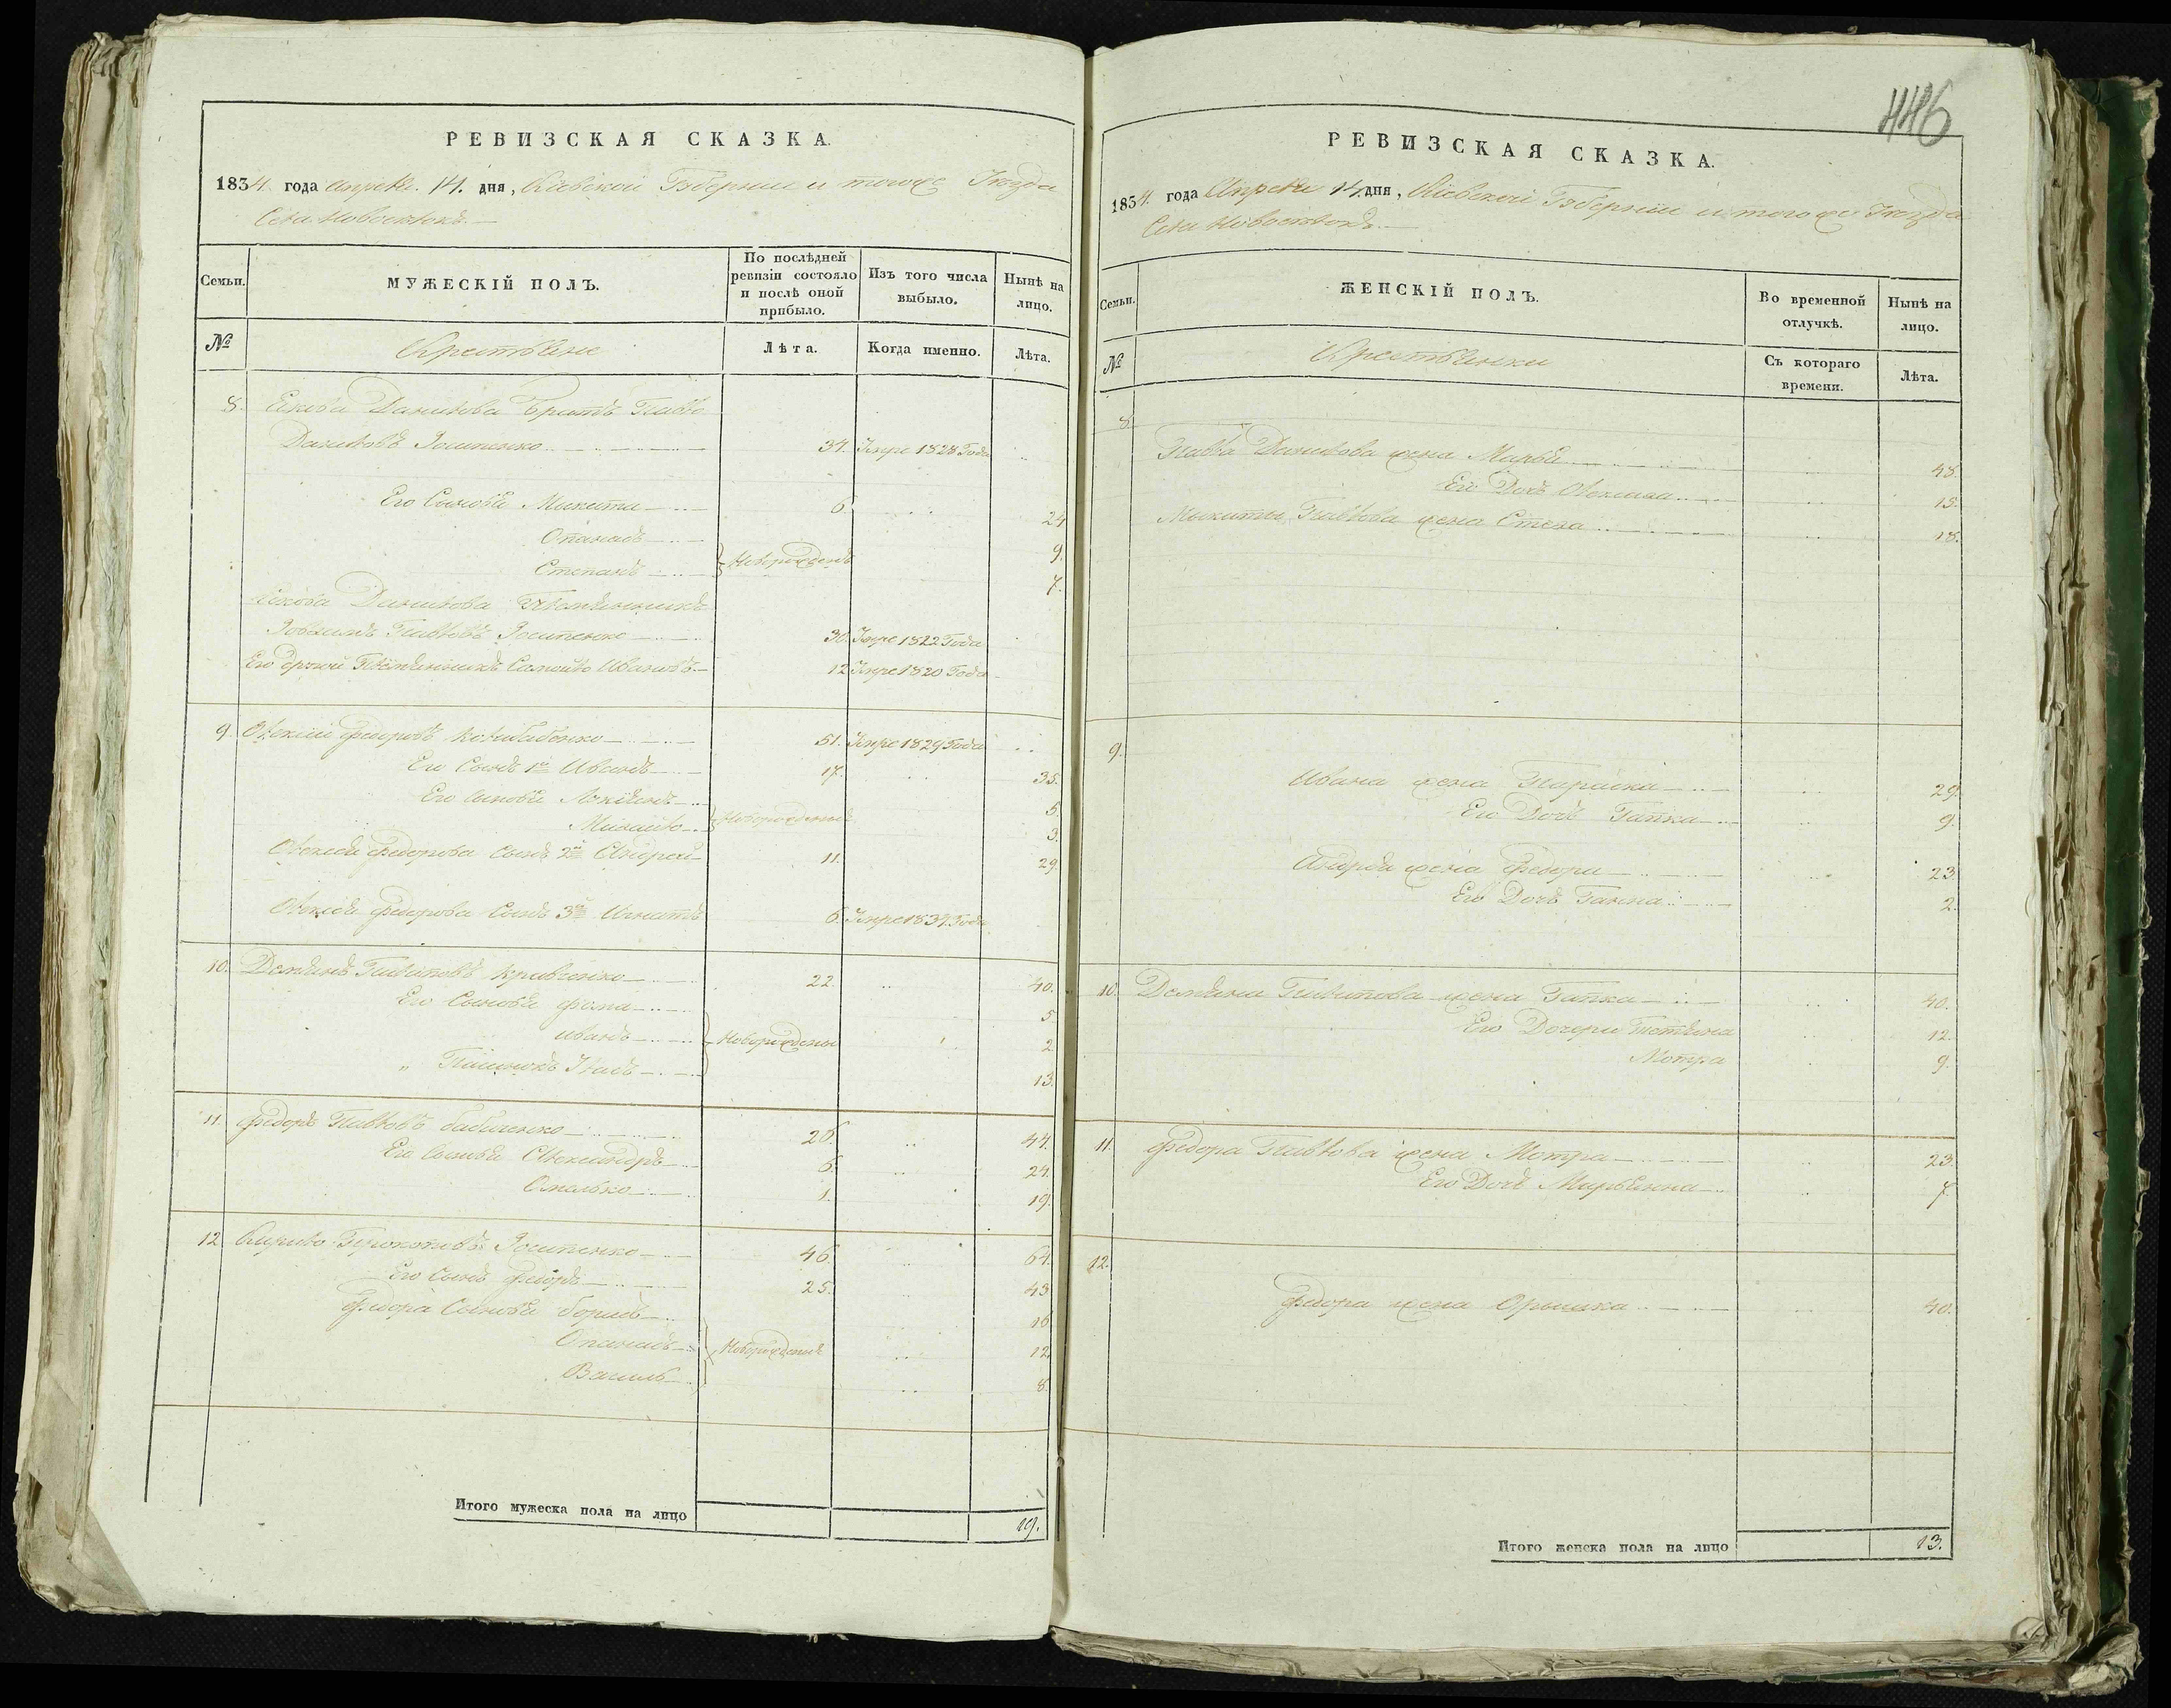 446
РЕВИЗСКАЯ СКАЗКА.
1834. года Апреля. 14. дня, Кіевской Губерніи и тогоже Уезда
Села Новоселокъ.
Семьи.
МУЖЕСКІЙ ПОЛЪ.
По послѣдней ревизіи состояло и послѣ оной прибыло.
Изъ того числа выбыло.
Нынѣ на лицо.
№
Крестьяне
Лѣта.
Когда именно.
Лѣта.
8. Данилова Братъ Павло
Даниловъ Осипенко 34. Умре 1828 Года
Его Сыновья Микита 6. 24
Опанасъ 9.
Степанъ Новорожденъ 7.
Данилова Племянникъ
Павловъ Осипенко 30. Умре 1822 Года
Его другой Племянникъ Самойло Ивановъ 12 Умре 1820 Года
9. Олексій Федоровъ 51. Умре 1829 Года
Его Сынъ 1й Иванъ 17. 35.
Его Сыновья Лукіянъ 5.
Михайло Новорожденые 3.
Олексея Федорова Сынъ 2й Андрей 11. 29.
Олексея Федорова Сынъ 3й Игнатъ 6. Умре 1834. Года
10. Демянъ Кравченко 22. 40.
Его Сыновья Фома 5.
Иванъ Новорождены 2
13.
11. Федоръ Павловъ Бабиченко 26. 44.
Его Сыновья Олександръ 6. 24.
Омелько 1. 19.
12 Кирило Прокоповъ Осипенко 46. 64.
Его Сынъ Федоръ 25. 43
Федора Сыновья Борисъ 16
Опанасъ Новорожденые 12.
Василь 8.
Итого мужеска пола на лицо 19.
РЕВИЗСКАЯ СКАЗКА.
1834. года Апреля 14. дня, Кіевской Губерніи и тогоже Уезда
Села Новоселокъ.
Семьи.
ЖЕНСКІЙ ПОЛЪ.
Во временной отлучкѣ.
Нынѣ на лицо.
№
Крестьянки
Съ котораго времени.
Лѣта.
8.
Павла Данилова жена Марья 48.
Его Дочь 15.
Микиты Павлова жена Стеха 18.
9.
Ивана жена Параска 29.
Его Дочь Гапка 9.
Андрея жена Федора 23.
Его Дочь Ганна 2.
10. Демяна жена Гапка 40.
Его Дочери Тетяна 12.
Мотря 9.
11. Федора Павлова жена Мотря 23.
Его Дочь Марьянна 7
12.
Федора жена Орышка 40.
Итого женска пола на лицо 13.